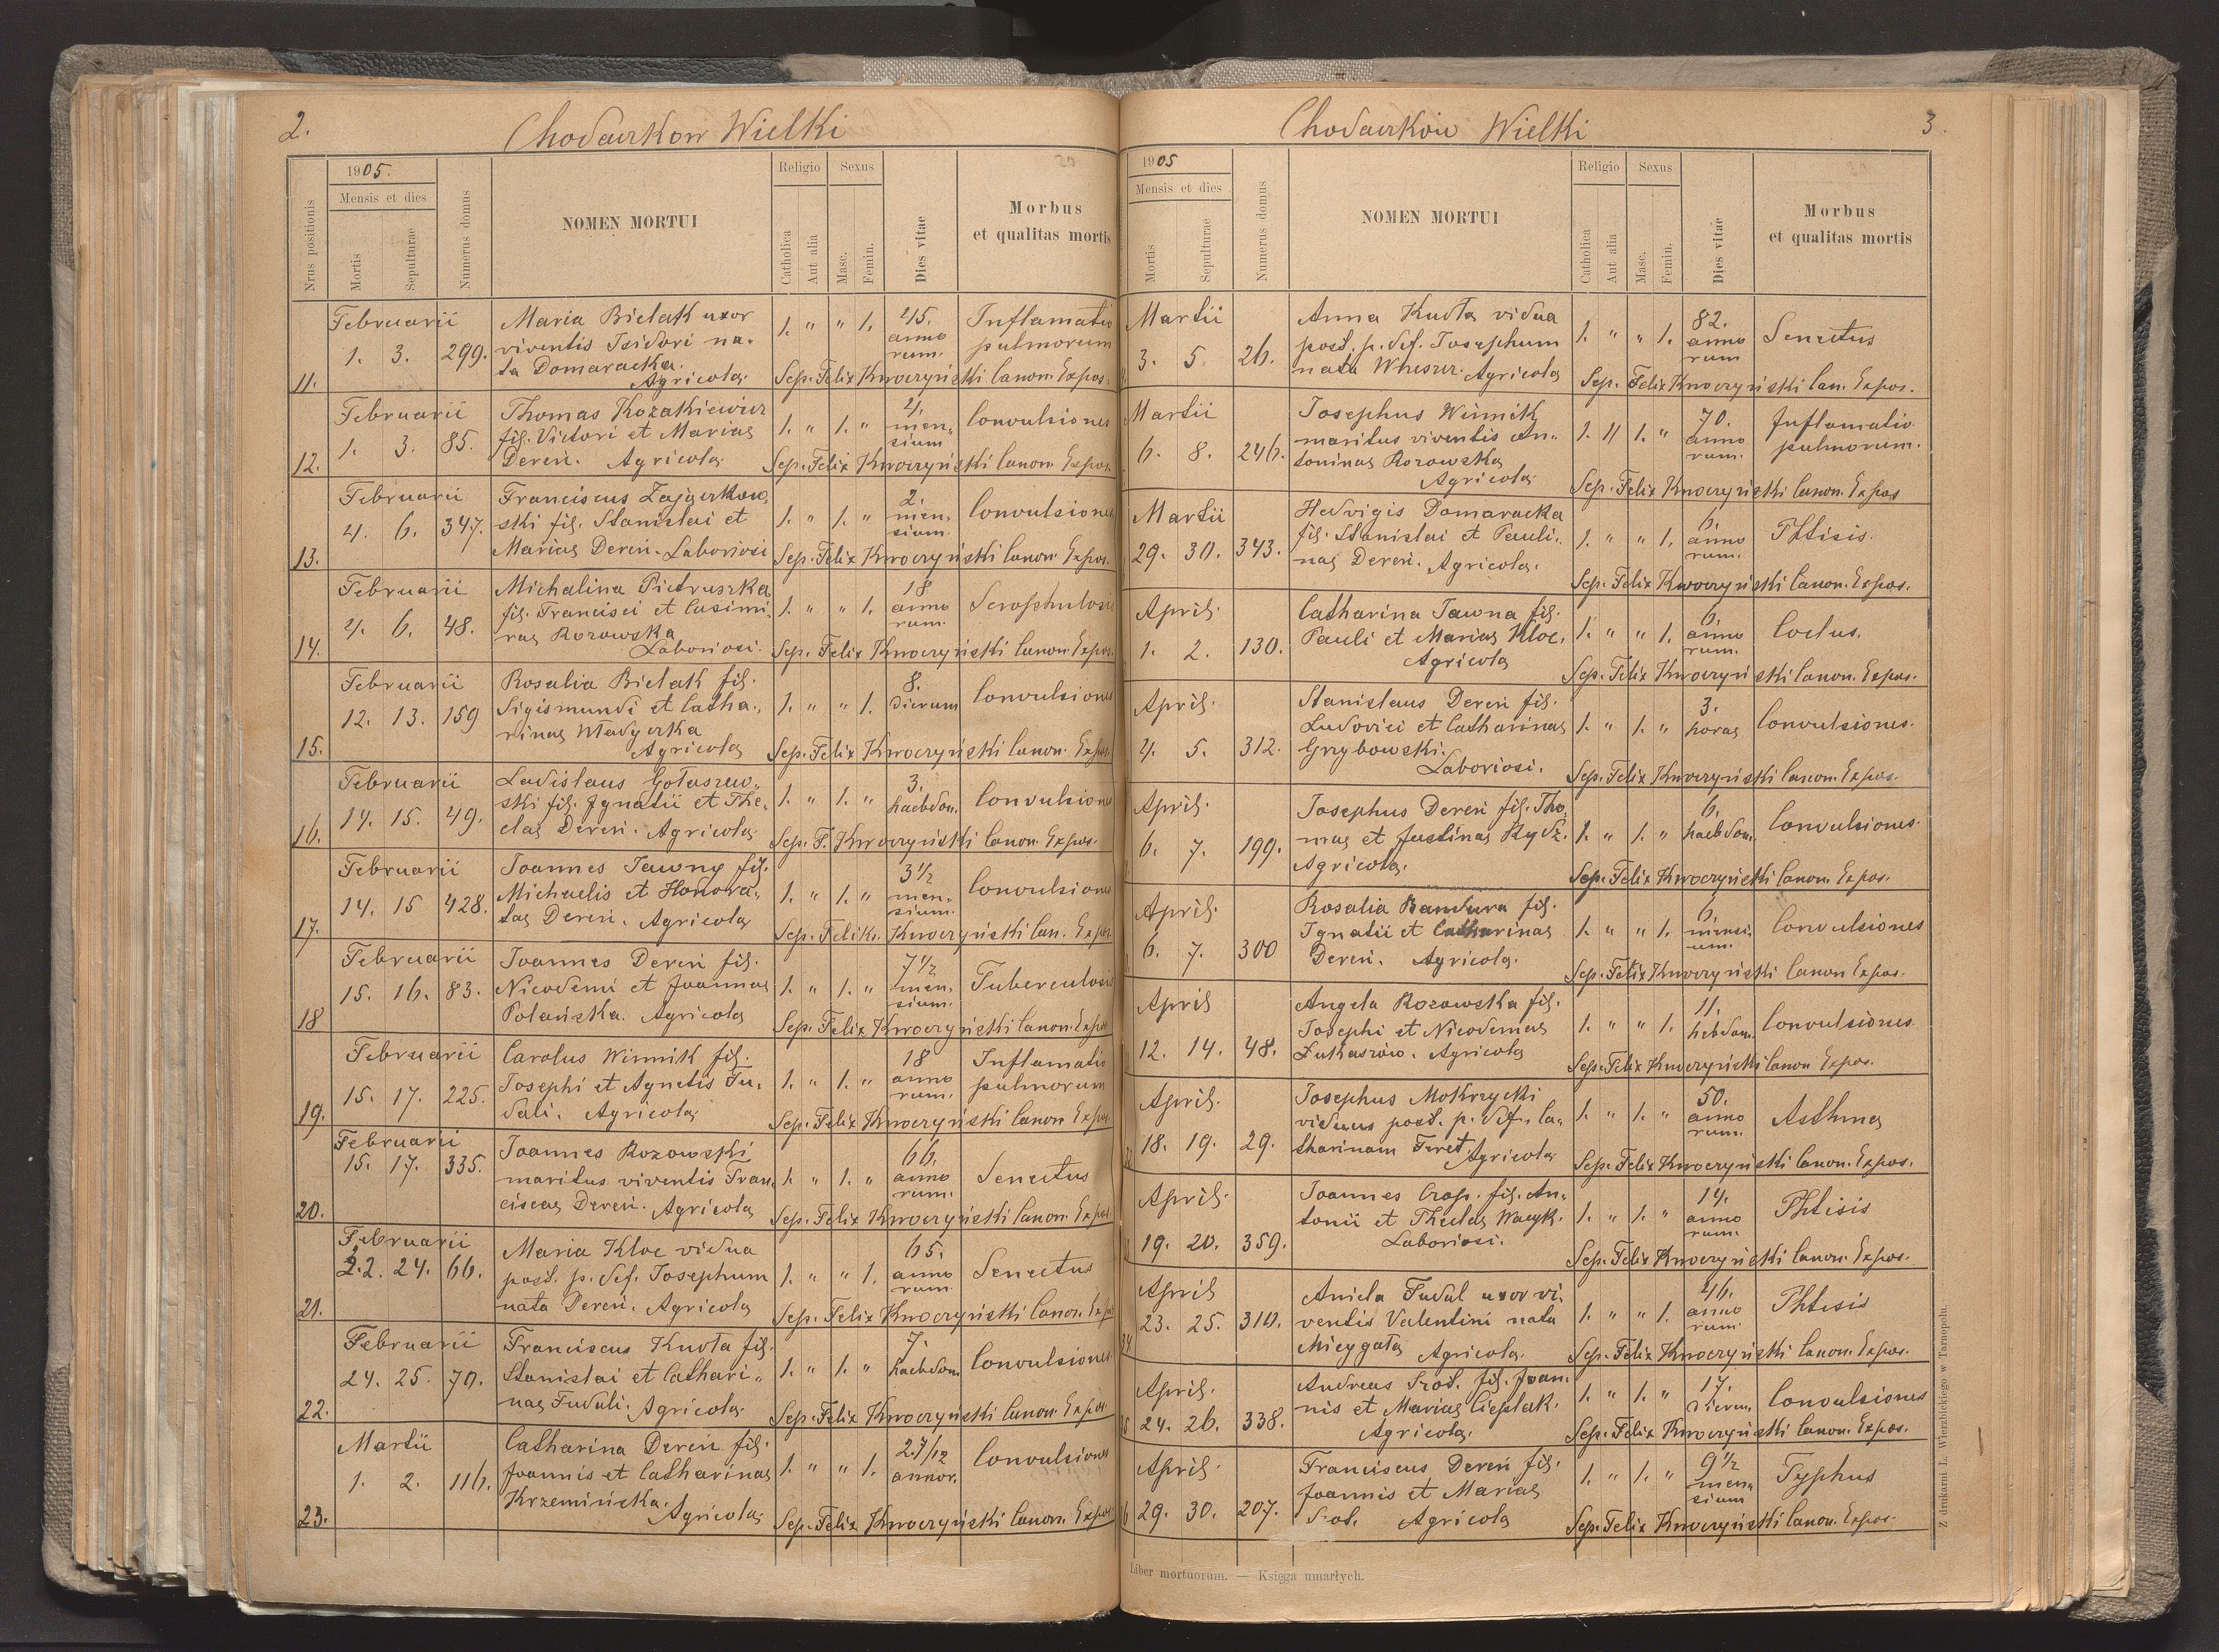 2.
Chodaczkow Wielki
Nrus positionis
1905.
Mensis et dies
Mortis
Sepulturae
Numerus domus
NOMEN MORTUI
Religio
Catholica
Aut alia
Sexus
Masc.
Femin.
Dies vitae
Morbus
et qualitas mortis
11.
Februarii
1. 3. 299.
Maria Bielak uxor
viventis Isidori na-
ta Domaracka.
Agricolae
1. " " 1.
45.
anno
rum.
Inflamatio
pulmorum
Sep. Felix Kwoczyński Canon. Expos.
12.
Februarii
1. 3. 85.
Thomas Kozakiewicz
fil. Victori et Mariae
Dereń. Agricolae
1. " 1. "
4.
men-
sium
Convulsiones
Sep. Felix Kwoczyński Canon. Expos.
13.
Februarii
4. 6. 347.
Franciscus Zajączkow-
ski fil. Stanislai et
Mariae Dereń. Laboriosi
1. " 1. "
2.
men-
sium.
Convulsiones
Sep. Felix Kwoczyński Canon. Expos.
14.
Februarii
4. 6. 48.
Michalina Pietruszka
fil. Francisci et Casimi-
rae Rozowska
Laboriosi.
1. " " 1.
18
anno
rum.
Scrophulosis
Sep. Felix Kwoczyński Canon. Expos.
15.
Februarii
12. 13. 159
Rosalia Bielak fil.
Sigismundi et Catha-
rinae Władyczka
Agricolae
1. " " 1.
8.
dierum
Convulsiones
Sep. Felix Kwoczyński Canon. Expos.
16.
Februarii
14. 15. 49.
Ladislaus Gołaszew-
ski fil. Ignatii et The-
clae Dereń. Agricolae
1. " 1. "
3.
haebdom.
Convulsiones
Sep. F. Kwoczyński Canon. Expos.
17.
Februarii
14. 15 428.
Joannes Jawny fil.
Michaelis et Honora-
tae Dereń. Agricolae
1. " 1. "
3 1/2
men-
sium.
Convulsiones
Sep. Felik. Kwoczyński Can. Expos.
18
Februarii
15. 16. 83.
Joannes Dereń fil.
Nicodemi et Joannae
Polańska. Agricolae
1. " 1. "
7 1/2
men-
sium.
Tuberculosis
Sep. Felix Kwoczyński Canon. Expos
19.
Februarii
15. 17. 225.
Carolus Winnik fil.
Josephi et Agnetis Fu-
dali. Agricolae
1. " 1. "
18
anno
rum.
Inflamatio
pulmorum
Sep. Felix Kwoczyński Canon Expos
20.
Februarii
15. 17. 335.
Joannes Rozowski
maritus viventis Fran-
ciscae Dereń. Agricolae
1. " 1. "
66.
anno
rum.
Senectus
Sep. Felix Kwoczyński Canon. Expos
21.
Februarii
22. 24. 66.
Maria Kloc vidua
post. p. def. Josephum
nata Dereń. Agricolae
1. " " 1.
65.
anno
rum.
Senectus
Sep. Felix Kwoczyński Canon. Expos
22.
Februarii
24. 25. 70.
Franciscus Kudła fil.
Stanislai et Cathari-
nae Fudali. Agricolae
1. " 1. "
7.
haebdom
Convulsiones
Sep. Felix Kwoczyński Canon. Expos
23.
Martii
1. 2. 116.
Catharina Dereń fil.
Joannis et Catharinae
Krzemińska. Agricolae
1. " " 1.
2 7/12
annor.
Convulsiones
Sep. Felix Kwoczyński Canon. Expos
Chodaczkow Wielki
3.
1905
Mensis et dies
Mortis
Sepulturae
Numerus domus
NOMEN MORTUI
Religio
Catholica
Aut alia
Sexus
Masc.
Femin.
Dies vitae
Morbus
et qualitas mortis
Martii
3. 5. 26.
Anna Kudła vidua
post. p. def. Josephum
nata Agricolae
1. " " 1.
82.
anno
rum
Senectus
Sep. Felix Kwoczyński Can. Expos.
Martii
6. 8. 246.
Josephus Winnik
maritus viventis An-
toninae Rozowska
Agricolae
1. " 1. "
70.
anno
rum.
Inflamatio
pulmorum.
Sep. Felix Kwoczyński Canon. Expos
Martii
29. 30. 343.
Hedvigis Domaracka
fil. Stanislai et Pauli-
nae Dereń. Agricolae.
1. " " 1.
6.
anno
rum.
Phtisis.
Sep. Felix Kwoczyński Canon. Expos.
April.
1. 2. 130.
Catharina Jawna fil.
Pauli et Mariae Kloc.
Agricolae
1. " " 1.
6.
anno
rum.
Coctus.
Sep. Felix Kwoczyński Canon. Expos.
April.
4. 5. 312.
Stanislaus Dereń fil.
Ludovici et Catharinae
Grzybowski.
Laboriosi.
1. " 1. "
3.
horae
Convulsiones.
Sep. Felix Kwoczyński Canon. Expos.
April.
6. 7. 199.
Josephus Dereń fil. Tho-
mae et Justinae Rydz.
Agricolae.
1. " 1. "
6.
haebdom.
Convulsiones.
Sep. Felix Kwoczyński Canon. Expos.
April.
6. 7. 300
Rosalia Bandura fil.
Ignatii et Catharinae
Dereń. Agricolae.
1. " " 1.
6.
mensi-
um.
Convulsiones
Sep. Felix Kwoczyński Canon Expos.
April
12. 14. 48.
Angela Rozowska fil.
Josephi et Nicodemae
Łukaszów. Agricolae
1. " " 1.
11.
hebdom.
Convulsiones
Sep. Felix Kwoczyński Canon Expos.
April.
18. 19. 29.
Josephus Mokrzycki
viduus post. p. def. Ca-
tharinam Feret. Agricolae
1. " 1. "
50.
anno
rum.
Asthma
Sep. Felix Kwoczyński Canon. Expos.
April.
19. 20. 359.
Joannes Crap. fil. An-
tonii et Theclae Wacyk.
Laboriosi.
1. " 1. "
14.
anno
rum.
Phtisis
Sep. Felix Kwoczyński Canon. Expos.
34
April
23. 25. 310.
Aniela Fudal uxor vi-
ventis Valentini nata
Niezgoda Agricolae.
1. " " 1.
46.
anno
rum.
Phtisis
Sep. Felix Kwoczyński Canon. Expos.
April.
24. 26. 338.
Andreas Szot. fil. Joan-
nis et Mariae Cieplak.
Agricolae.
1. " 1. "
17.
dierum
Convulsiones
Sep. Felix Kwoczyński Canon. Expos.
April.
29. 30. 207.
Franciscus Dereń fil.
Joannis et Mariae
Szot. Agricolae
1. " 1. "
9 1/2
men-
sium
Typhus
Sep. Felix Kwoczyński Canon. Expos.
Liber mortuorum. — Księga umarłych.
Z drukarni L. Wierzbickiego w Tarnopolu.